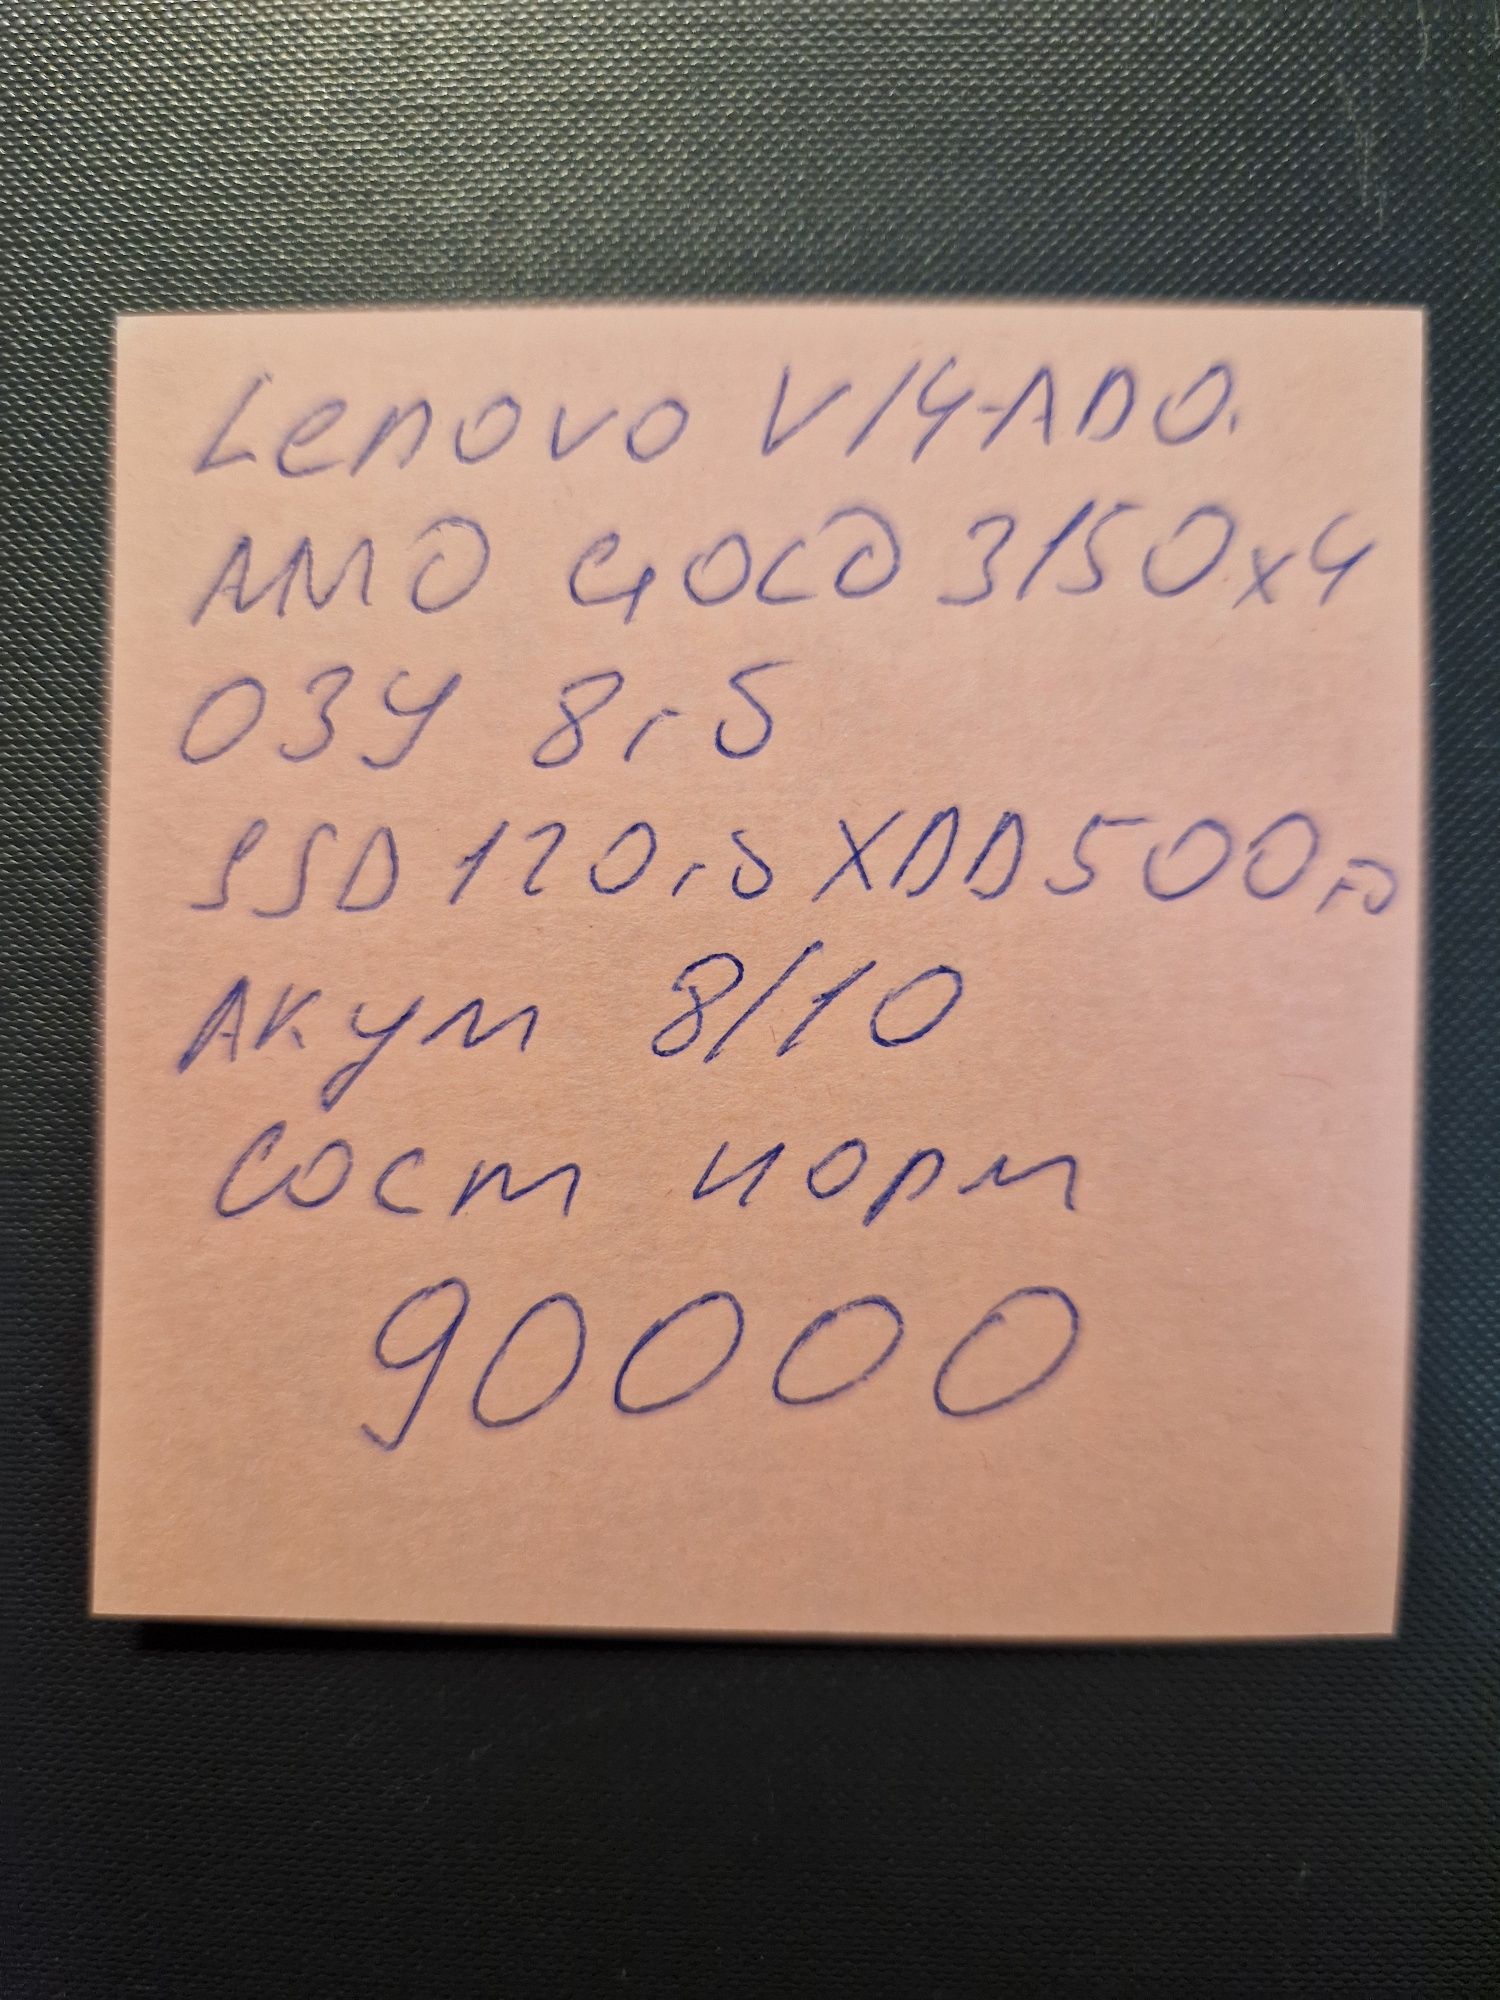 Lenovo V14-ADA.
AMD GOLD 3150x4
ОЗУ 8гб
SSD 120гб ХDD 500гб
Акум 8/10
Сост норм
90000